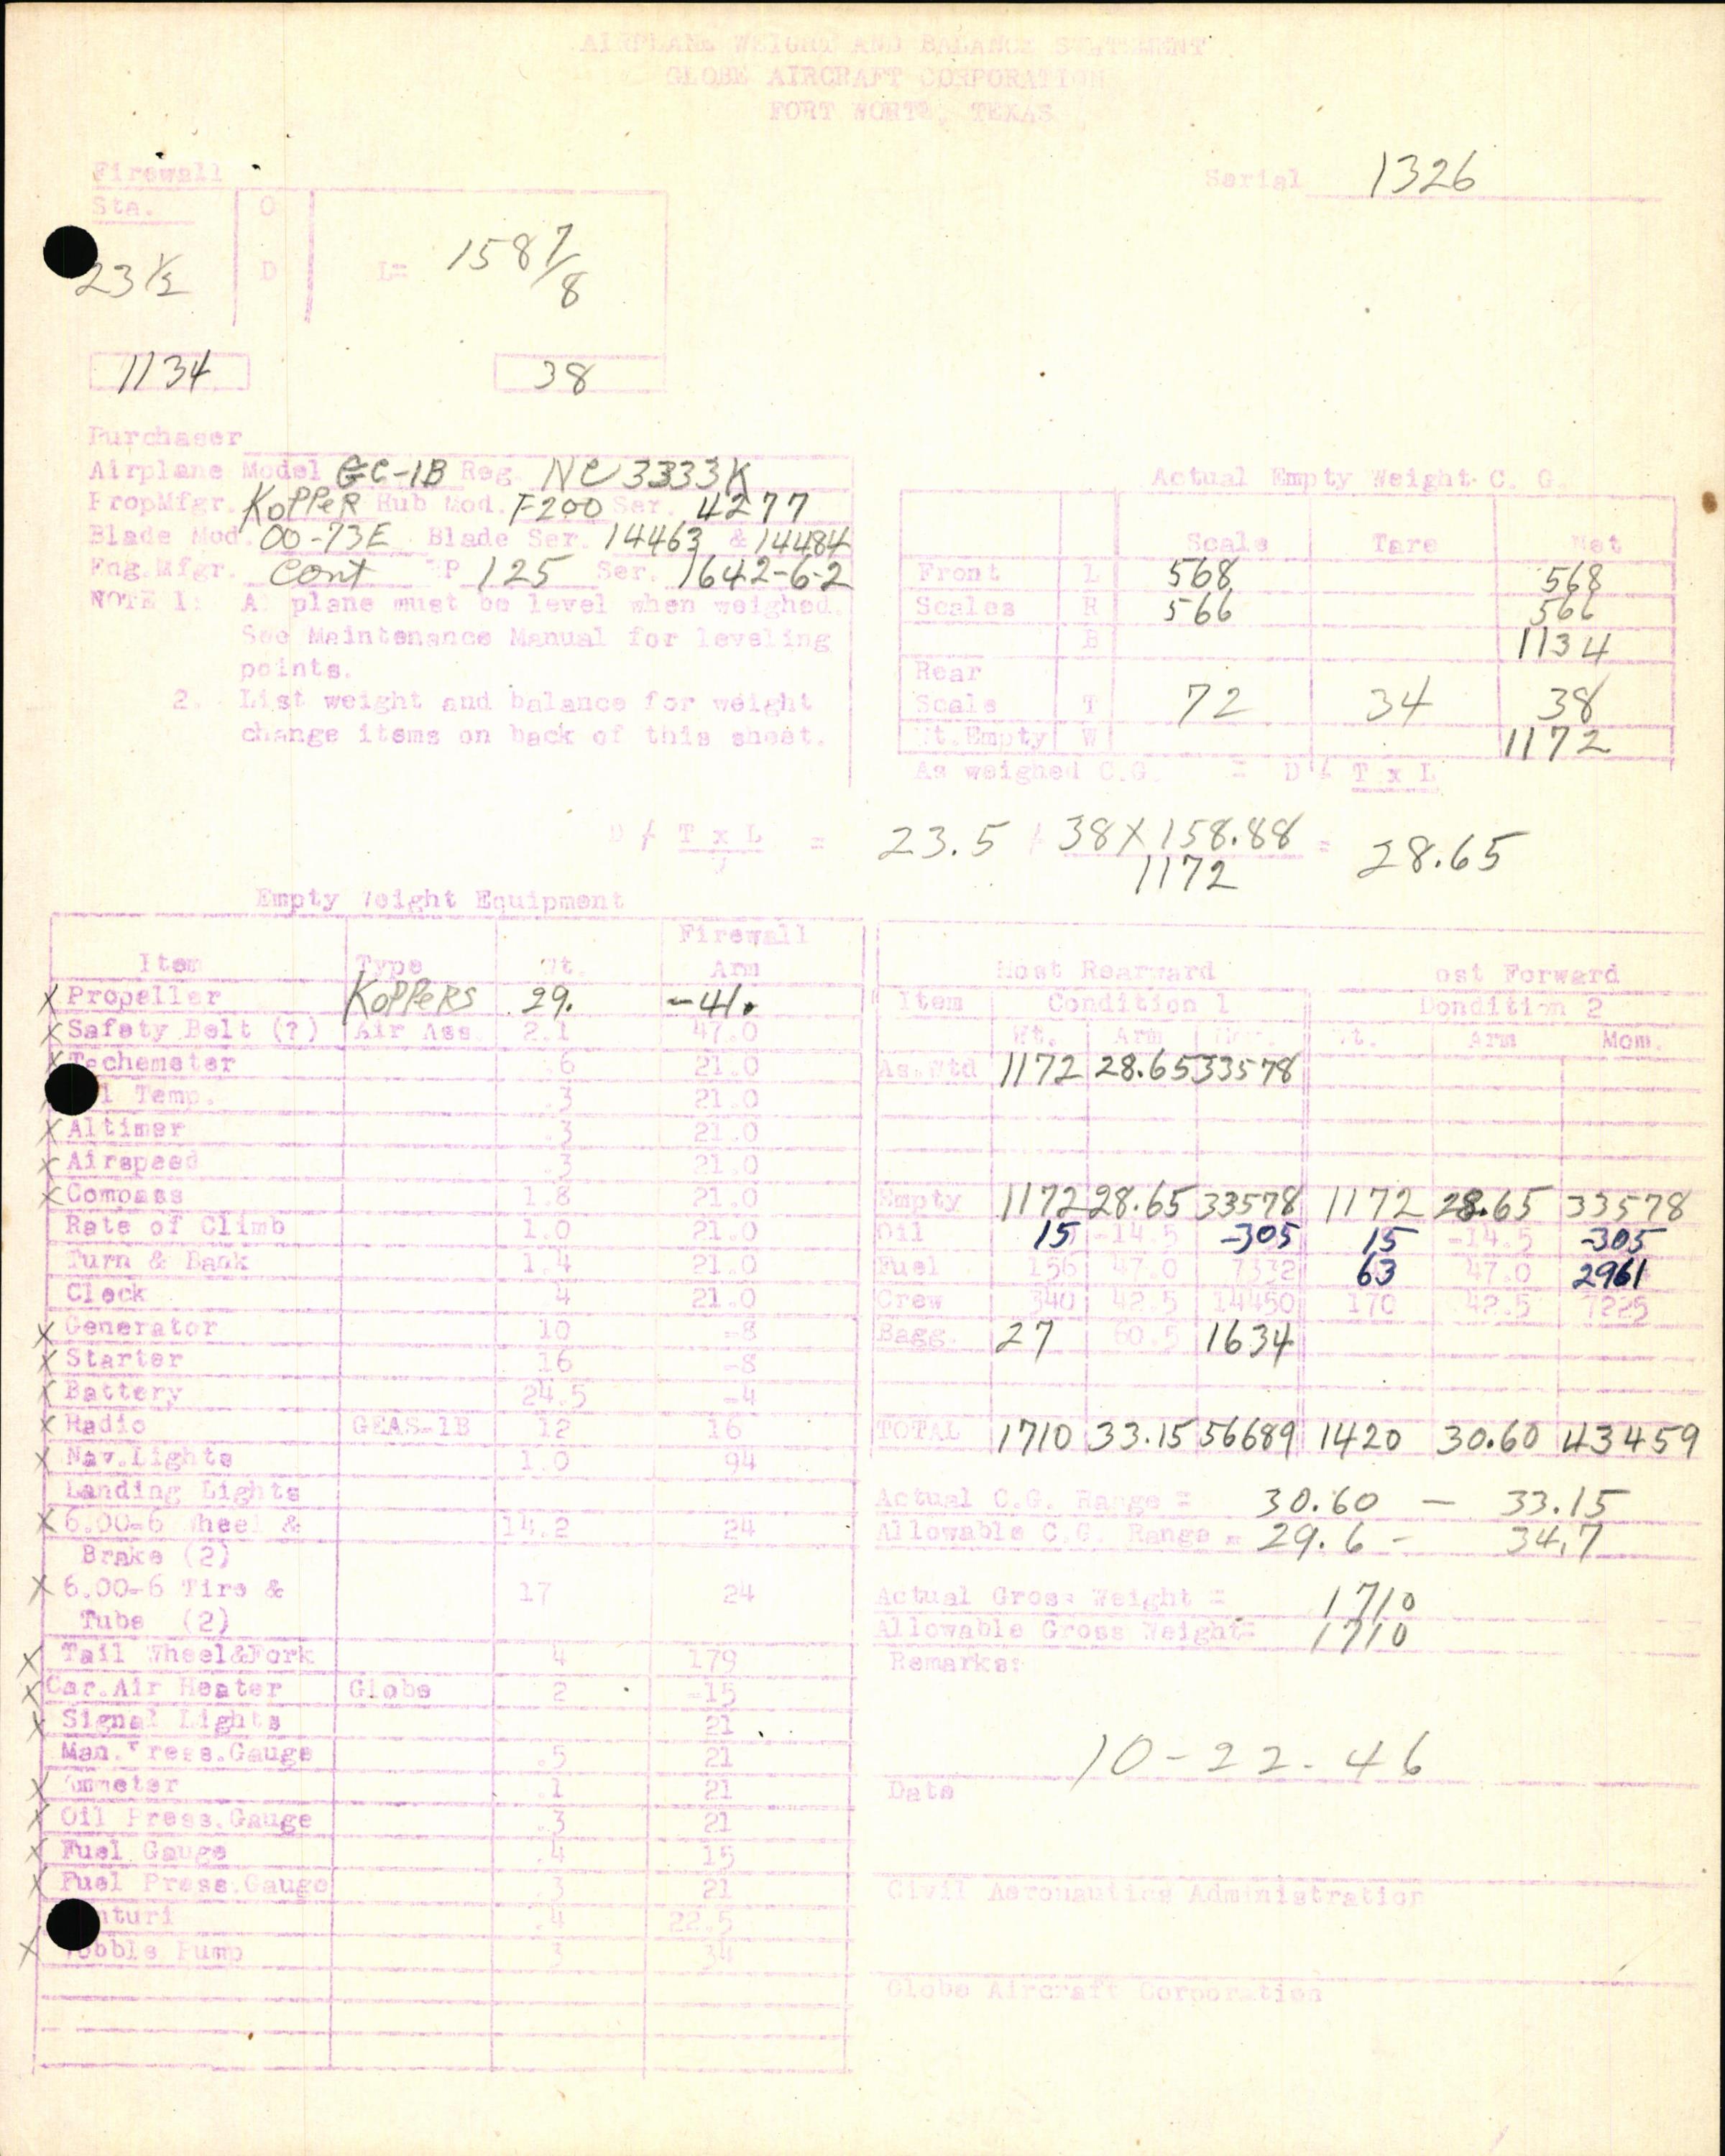 AIRPLANE WEIGHT AND BALANCE STATEMENT
GLOBE AIRCRAFT CORPORATION
FORT WORTH, TEXAS
Firewall
Serial 1326
Sta. O
23 1/2 D L= 158 7/8
1134 38
Purchaser
Airplane Model GC-1B Reg. NC3333K
PropMfgr. KOPPER Hub Mod. F200 Ser. 4277
Blade Mod. 00-73E Blade Ser. 14463 & 14484
Eng.Mfgr. Cont HP 125 Ser. 1642-6-2
NOTE 1: Airplane must be level when weighed.
See Maintenance Manual for leveling
points.
2. List weight and balance for weight
change items on back of this sheet.
Actual Empty Weight C. G.
Scale Tare Net
Front L 568 568
Scales R 566 566
B 1134
Rear
Scale T 72 34 38
Wt.Empty W 1172
As weighed C.G. = D / T x L
D / T x L = 23.5 / 38X158.88 = 28.65
W 1172
Empty Weight Equipment
Firewall
Item Type Wt. Arm
X Propeller KOPPERS 29. -41.
X Safety Belt (?) Air Ass. 2.1 47.0
X Techemeter .6 21.0
l Temp. .3 21.0
X Altimer .3 21.0
X Airspeed .3 21.0
X Compass 1.8 21.0
Rate of Climb 1.0 21.0
Turn & Bank 1.4 21.0
Clock .4 21.0
X Generator 10 -8
X Starter 16 -8
X Battery 24.5 -4
X Radio GEAS-1B 12 16
X Nav.Lights 1.0 94
Landing Lights
X 6.00-6 Wheel & 14.2 24
Brake (2)
X 6.00-6 Tire & 17 24
Tube (2)
X Tail Wheel&Fork 4 179
X Car.Air Heater Globe 2 -15
X Signal Lights 21
Man.Press.Gauge .5 21
X Ammeter .1 21
X Oil Press.Gauge .3 21
X Fuel Gauge .4 15
X Fuel Press.Gauge .3 21
nturi .4 22.5
X Wobble Pump 3 34
Most Rearward Most Forward
Item Condition 1 Dondition 2
Wt. Arm Mom. Wt. Arm Mom.
As.Wtd 1172 28.65 33578
Empty 1172 28.65 33578 1172 28.65 33578
Oil 15 -14.5 -305 15 -14.5 -305
Fuel 156 47.0 7332 63 47.0 2961
Crew 340 42.5 14450 170 42.5 7225
Bagg. 27 60.5 1634
TOTAL 1710 33.15 56689 1420 30.60 43459
Actual C.G. Range = 30.60 — 33.15
Allowable C.G. Range = 29.6 - 34.7
Actual Gross Weight = 1710
Allowable Gross Weight= 1710
Remarks:
10-22-46
Date
Civil Aeronautics Administration
Globe Aircraft Corporation